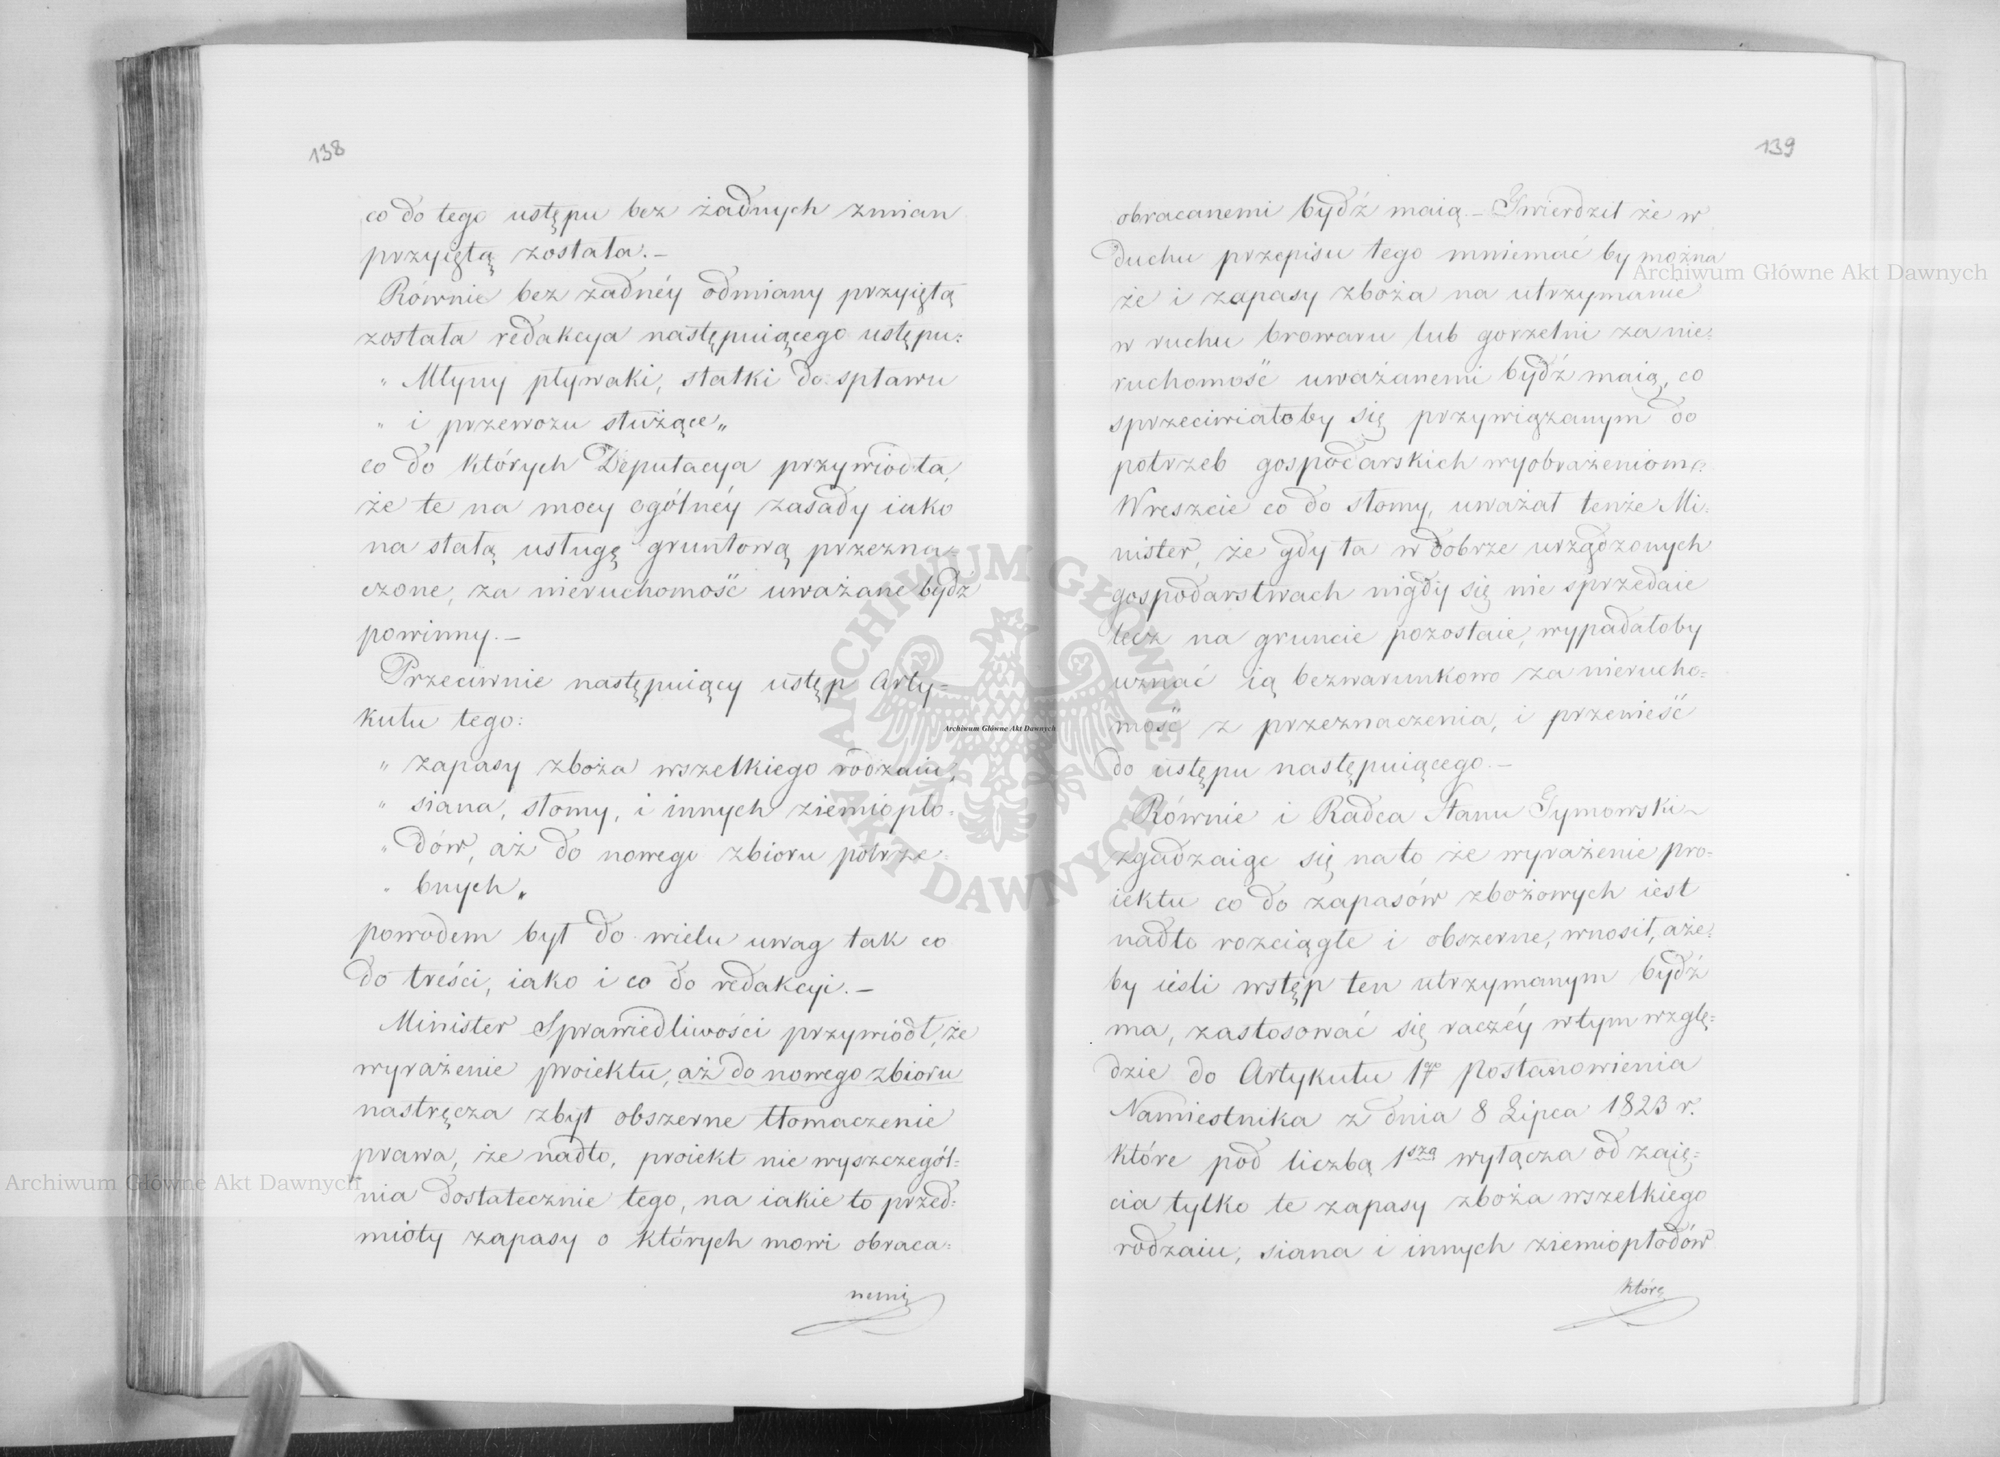 138
co do tego ustępu bez żadnych zmian
przyiętą została.—
Równie bez żadnéy odmiany przyiętą
została redakcya następuiącego ustępu:
„ Młyny pływaki, statki do spławu
„ i przewozu służące„
co do których Deputacya przywiodła,
że te na mocy ogólnéy zasady iako
na stałą usługę gruntową przezna=
czone, za nieruchomość uważane bydź
powinny.—
Przeciwnie następuiący ustęp Arty=
kułu tego:
„ zapasy zboża wszelkiego rodzaiu,
„ siana, słomy, i innych ziemiopło=
„ dów, aż do nowego zbioru potrze=
„ bnych„
powodem był do wielu uwag tak co
do treści, iako i co do redakcyi.—
Minister Sprawiedliwości przywiódł, że
wyrażenie proiektu, aż do nowego zbioru
nastręcza zbyt obszerne tłomaczenie
prawa, że nadto, proiekt nie wyszczegól=
nia dostatecznie tego, na iakie to przed=
mioty zapasy o których mowi obraca=
nemi
139
obracanemi bydź maią.— Twierdził że w
duchu przepisu tego mniemać by można
że i zapasy zboża na utrzymanie
w ruchu browaru lub gorzelni za nie=
ruchomość uważanemi bydź maią, co
sprzeciwiałoby się przywiązanym do
potrzeb gospodarskich wyobrażeniom.
Wreszcie co do słomy, uważał tenże Mi=
nister, że gdy ta w dobrze urządzonych
gospodarstwach nigdy się nie sprzedaie
lecz na gruncie pozostaie, wypadałoby
uznać ią bezwarunkowo za nierucho=
mość z przeznaczenia, i przenieść
do ustępu następuiącego.—
Równie i Radca Stanu Tymowski
zgadzaiąc się na to że wyrażenie pro=
iektu co do zapasów zbożowych iest
nadto rozciągłe i obszerne, wnosił, aże=
by ieśli wstęp ten utrzymanym bydź
ma, zastosować się raczéy w tym wzglę=
dzie do Artykułu 17go Postanowienia
Namiestnika z dnia 8 Lipca 1823 r.
które pod liczbą 1szą wyłącza od zaię=
cia tylko te zapasy zboża wszelkiego
rodzaiu, siana i innych ziemiopłodów
które
Archiwum Główne Akt Dawnych
Archiwum Główne Akt Dawnych
Archiwum Główne Akt Dawnych
ARCHIWUM GŁÓWNE AKT DAWNYCH